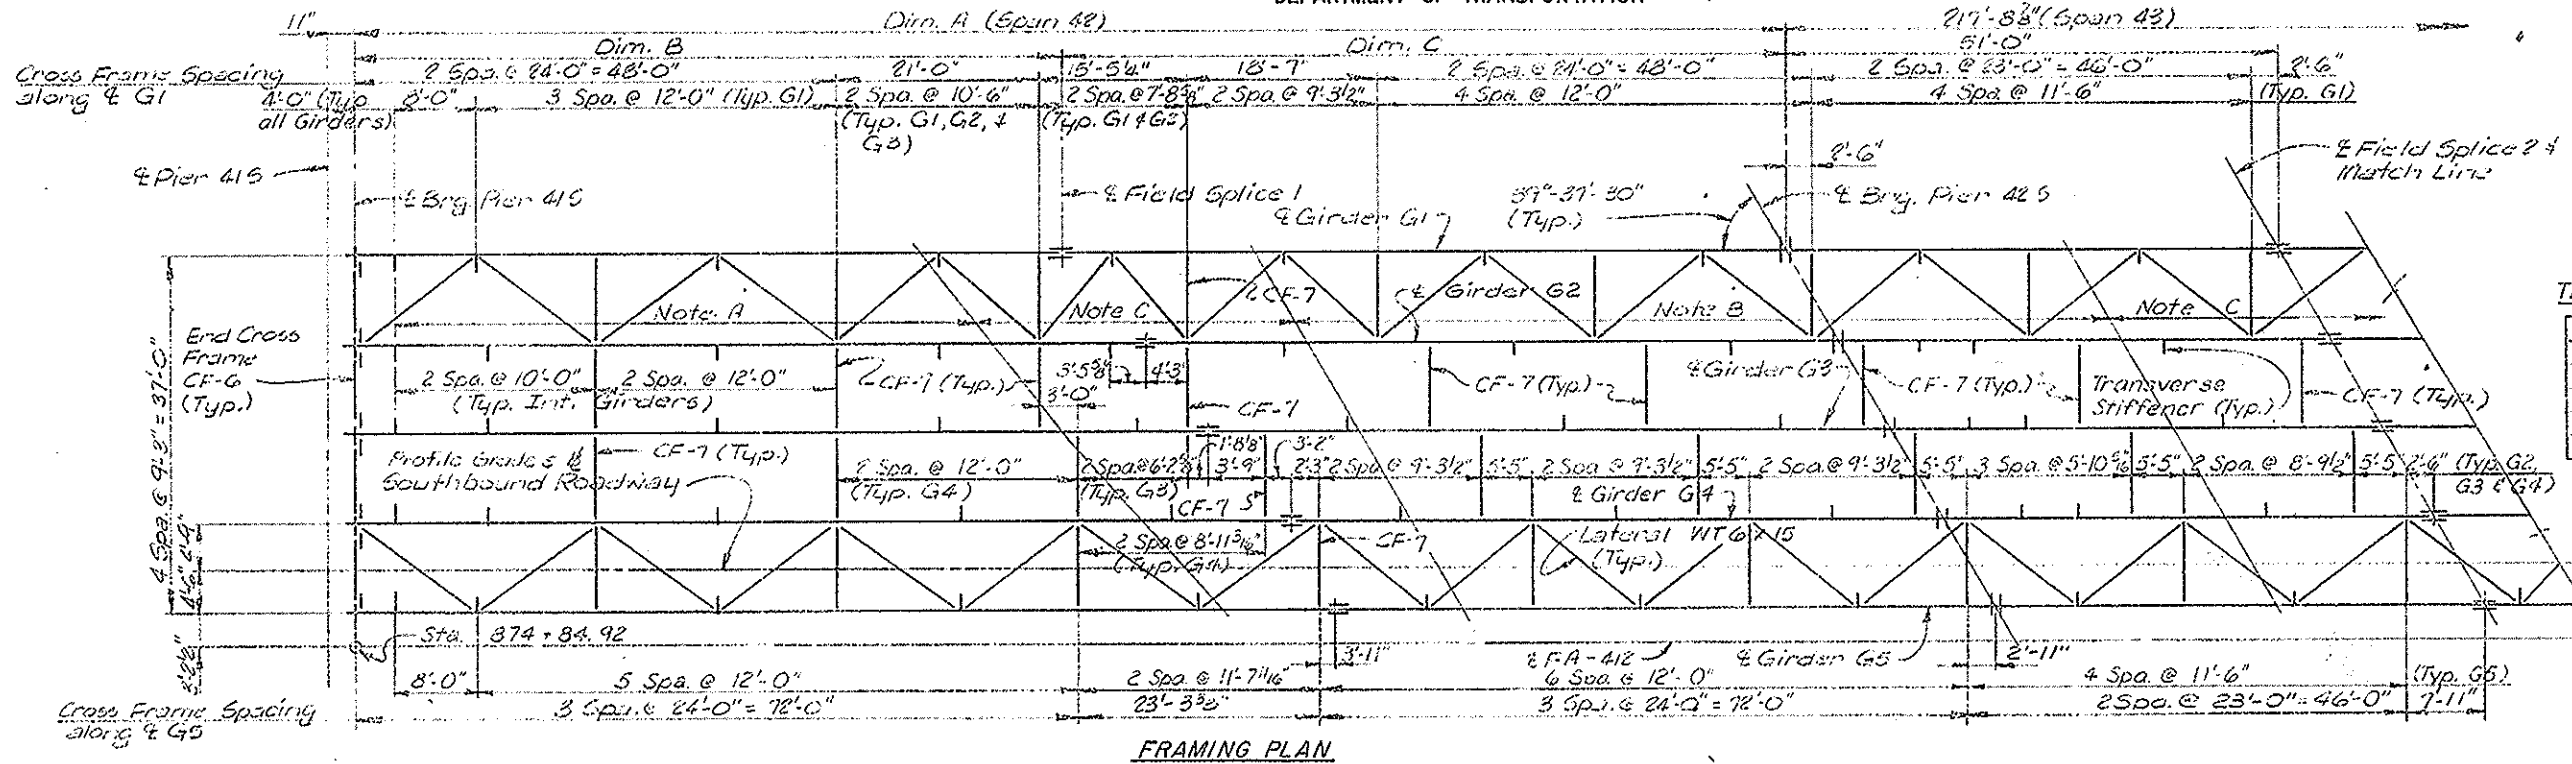 DEPARTMENT OF TRANSPORTATION
11"
Dim. A (Span 42)
217'-8⅜" (Span 43)
Dim. B
Dim. C
51'-0"
Cross Frame Spacing
along ℄ G1
2 Spa. @ 24'-0" = 48'-0"
21'-0"
15'-5¼"
18'-7"
2 Spa. @ 24'-0" = 48'-0"
2 Spa. @ 23'-0" = 46'-0"
2'-6"
4'-0" (Typ.
all Girders)
8'-0"
3 Spa. @ 12'-0" (Typ. G1)
2 Spa. @ 10'-6"
(Typ. G1, G2, &
G3)
2 Spa. @ 7'-8⅝"
(Typ. G1 & G2)
2 Spa. @ 9'-3½"
4 Spa. @ 12'-0"
4 Spa. @ 11'-6"
(Typ. G1)
2'-6"
℄ Pier 41S
℄ Brg. Pier 41S
℄ Field Splice 1
℄ Girder G1
59°-37'-30"
(Typ.)
℄ Brg. Pier 42S
℄ Field Splice 2 &
Match Line
Note A
Note C
℄ CF-7
℄ Girder G2
Note B
Note C
4 Spa. @ 9'-3" = 37'-0"
End Cross
Frame
CF-6
(Typ.)
2 Spa. @ 10'-0"
2 Spa. @ 12'-0"
(Typ. Int. Girders)
CF-7 (Typ.)
3'-5⅝"
4'-3"
3'-0"
CF-7
CF-7 (Typ.)
℄ Girder G3
CF-7 (Typ.)
Transverse
Stiffener (Typ.)
CF-7 (Typ.)
Profile Grade & ℄
Southbound Roadway
CF-7 (Typ.)
2 Spa. @ 12'-0"
(Typ. G4)
2 Spa @ 6'-2⅝"
(Typ. G3)
1'-8⅛"
3'-9"
3'-2"
2'-3"
2 Spa @ 9'-3½"
5'-5"
2 Spa @ 9'-3½"
5'-5"
2 Spa @ 9'-3½"
5'-5"
3 Spa. @ 5'-10 5/16"
5'-5"
2 Spa @ 8'-9½"
5'-5"
2'-6" (Typ. G2,
G3 & G4)
CF-7
℄ Girder G4
4'-6"
4'-9"
2 Spa @ 8'-11 3/16"
(Typ. G4)
CF-7
Lateral WT 6 x 15
(Typ.)
Sta. 874 + 84.92
3'-11"
℄ F.A-412
℄ Girder G5
2'-11"
8'-0"
5 Spa. @ 12'-0"
2 Spa @ 11'-7 11/16"
6 Spa @ 12'-0"
4 Spa @ 11'-6"
(Typ. G5)
Cross Frame Spacing
along ℄ G5
3 Spa. @ 24'-0" = 72'-0"
23'-3⅜"
3 Spa. @ 24'-0" = 72'-0"
2 Spa. @ 23'-0" = 46'-0"
7'-11"
FRAMING PLAN